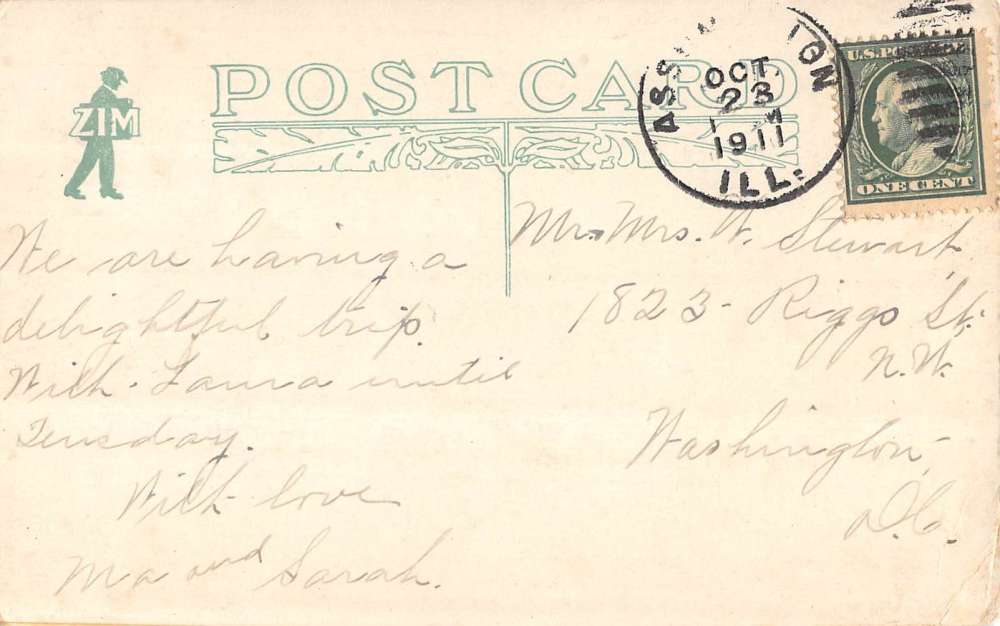 ZIM
POST CARD
OCT.
23
M
1911
ILL.
U.S. PO
ONE CENT
We are having a
delightful trip.
With Laura until
Teusday.
With love
Ma and Sarah.
Mr. Mrs. W. Stewart
1823- Riggs St.
N.W.
Washington,
D.C.